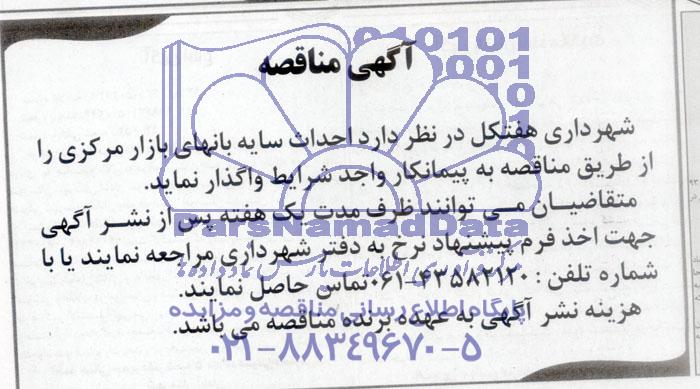 آگهی مناقصه
شهرداری هفتکل در نظر دارد احداث سایه بانهای بازار مرکزی را
از طریق مناقصه به پیمانکار واجد شرایط واگذار نماید.
متقاضیان می توانند ظرف مدت یک هفته پس از نشر آگهی
جهت اخذ فرم پیشنهاد نرخ به دفتر شهرداری مراجعه نمایند یا با
شماره تلفن : ۴۳۵۸۲۱۲۰-۰۶۱ تماس حاصل نمایند.
هزینه نشر آگهی به عهده برنده مناقصه می باشد.
ParsNamadData
پایگاه اطلاع رسانی مناقصه و مزایده
۰۲۱-۸۸۳۴۹۶۷۰-۵